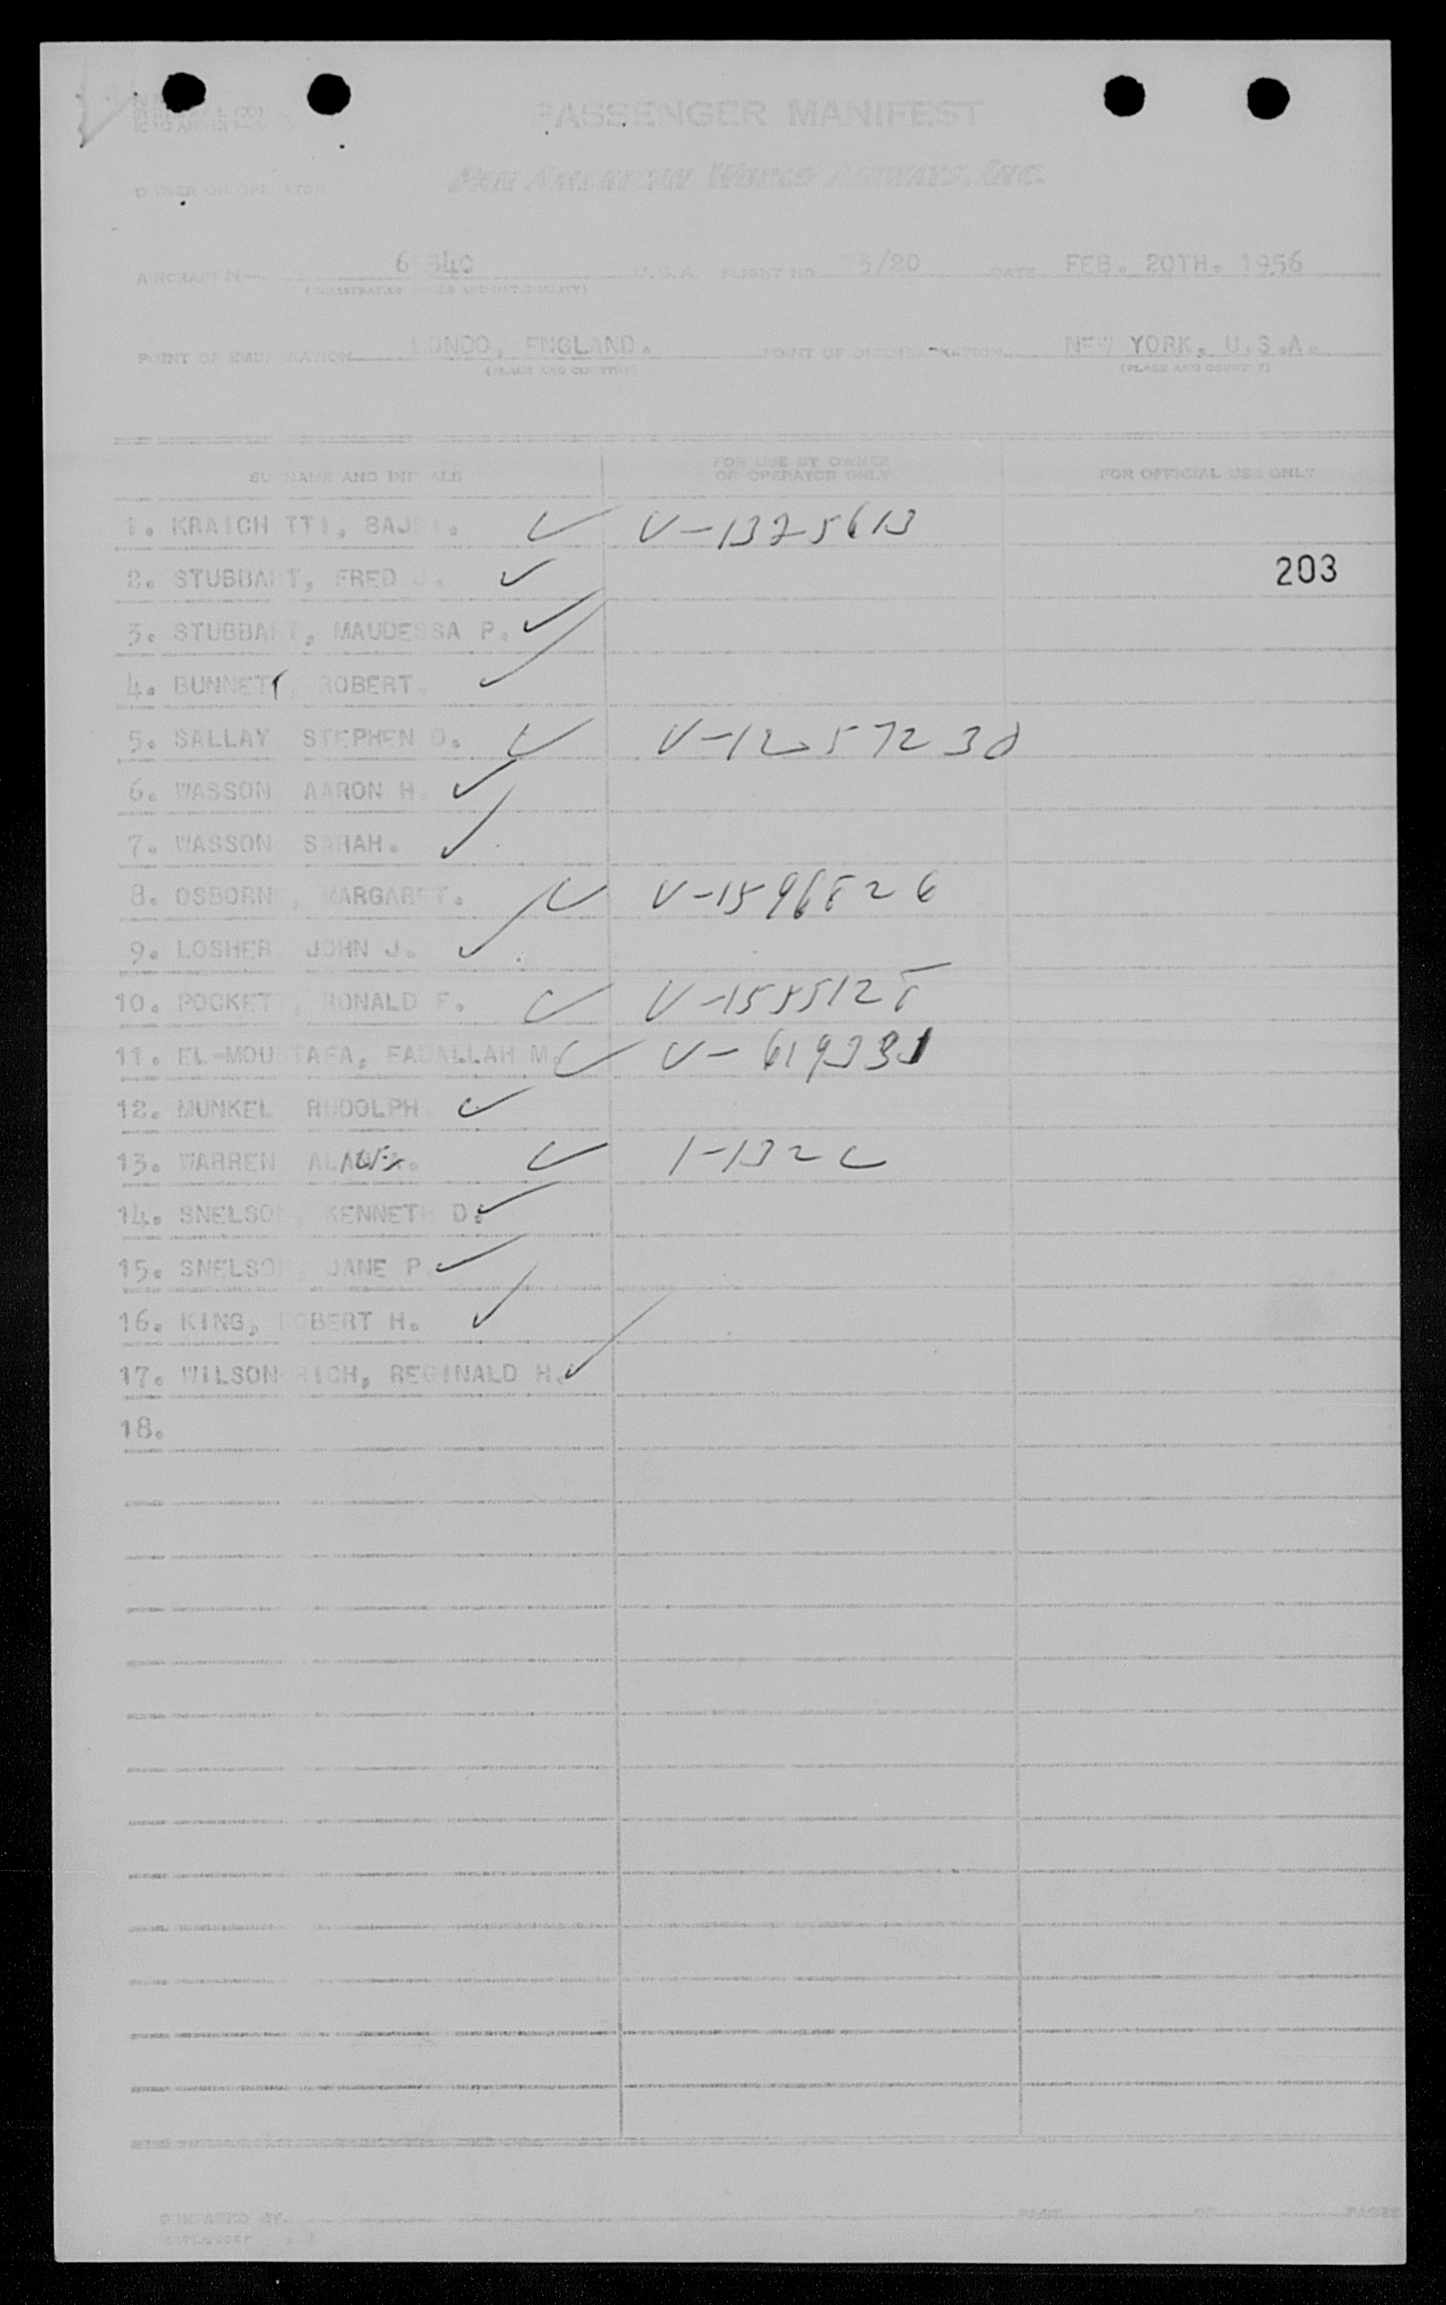 PASSENGER MANIFEST
PAN AMERICAN WORLD AIRWAYS, INC.
OWNER OR OPERATOR
AIRCRAFT N— U.S.A. FLIGHT NO. 5/20 DATE FEB. 20TH. 1956
POINT OF EMBARKATION LONDO, ENGLAND. POINT OF DISEMBARKATION NEW YORK, U.S.A.
(PLACE AND COUNTRY) (PLACE AND COUNTRY)
SURNAME AND INITIALS FOR USE BY OWNER OR OPERATOR ONLY FOR OFFICIAL USE ONLY
1. V-1325613
2. STUBBART, FRED J. 203
3. STUBBART, MAUDESSA P.
4. BUNNETT, ROBERT.
5. SALLAY STEPHEN O. V-1257230
6. WASSON AARON H.
7. WASSON SARAH.
8. OSBORNE, MARGARET. V-1596826
9. LOSHER JOHN J.
10. POCKETT, RONALD F. V-1585128
11. EL-MOUSTAFA, FADALLAH M. V-619331
12. MUNKEL RUDOLPH
13. WARREN 1-132
14. SNELSON, KENNETH D.
15. SNELSON, JANE P.
16. KING, ROBERT H.
17. WILSON-RICH, REGINALD H.
18.
PREPARED BY PAGE OF PAGES